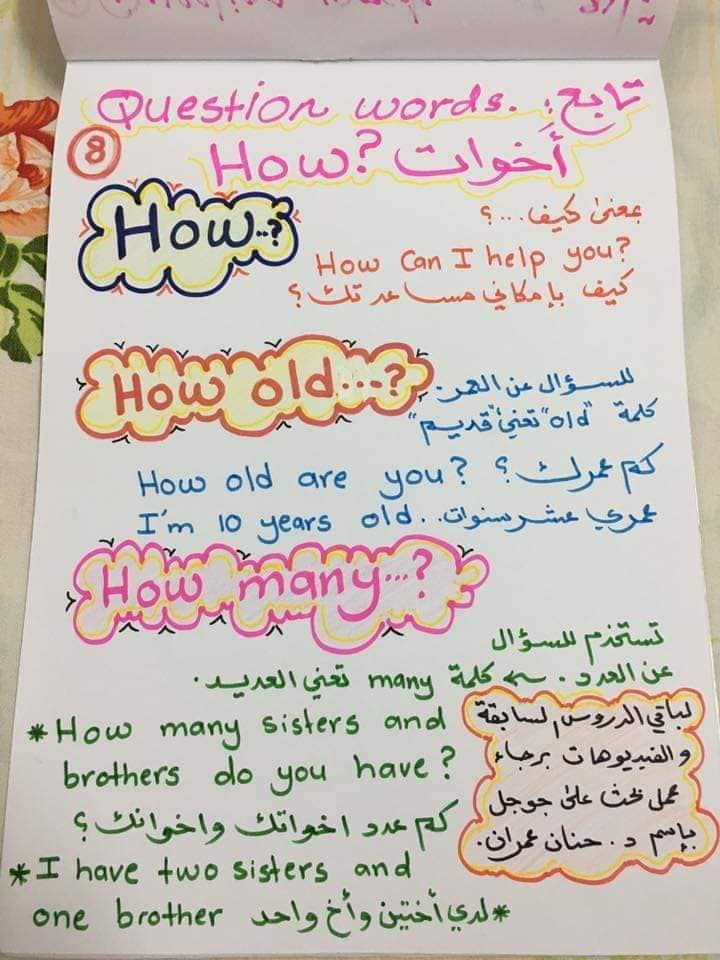 Question words. تابع:
How? أخوات
8
How..?
بمعنى كيف...؟
How Can I help you?
كيف بإمكاني مساعدتك؟
How old...?
للسؤال عن العمر.
كلمة "old" تعني "قديم"
How old are you? كم عمرك؟
I'm 10 years old.. عمري عشر سنوات
How many...?
تستخدم للسؤال
عن العدد. كلمة many تعني العديد.
*How many sisters and
brothers do you have?
كم عدد اخواتك واخوانك؟
*I have two sisters and
one brother لدي أختين وأخ واحد*
لباقي الدروس لسابقة
والفيديوهات برجاء
عمل بحث على جوجل
بإسم د. حنان عمران.